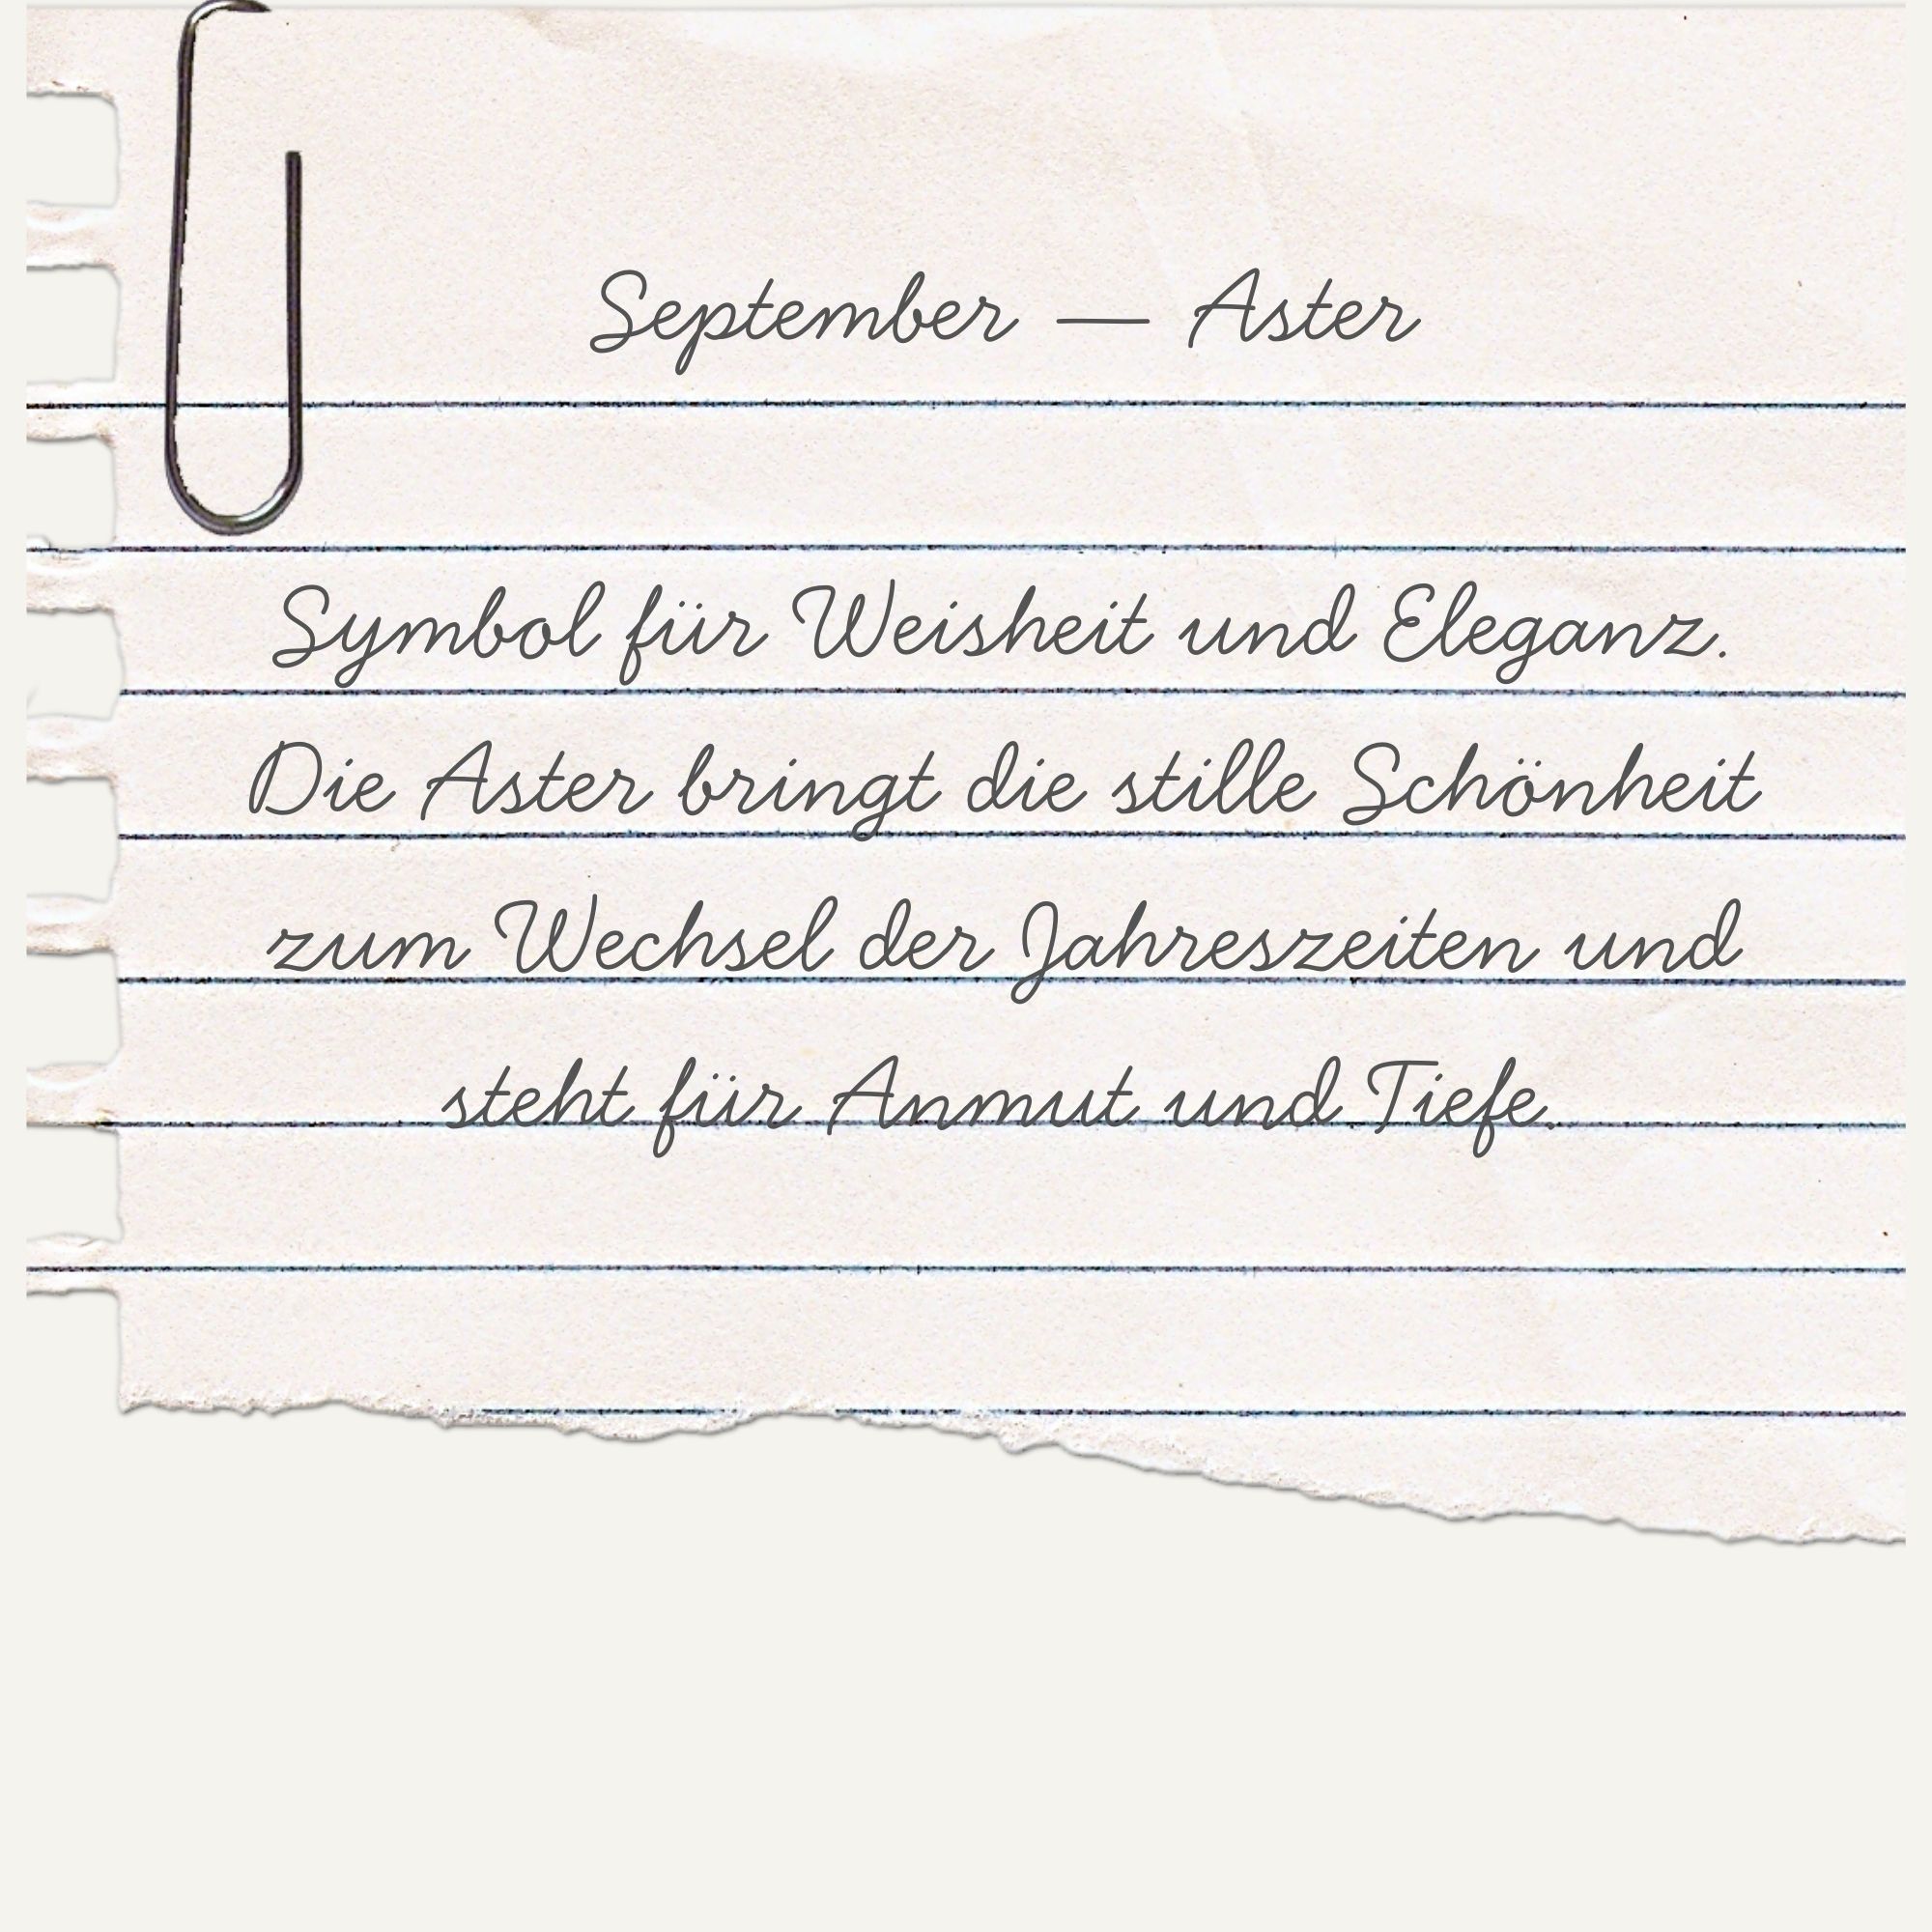 September — Aster
Symbol für Weisheit und Eleganz.
Die Aster bringt die stille Schönheit
zum Wechsel der Jahreszeiten und
steht für Anmut und Tiefe.